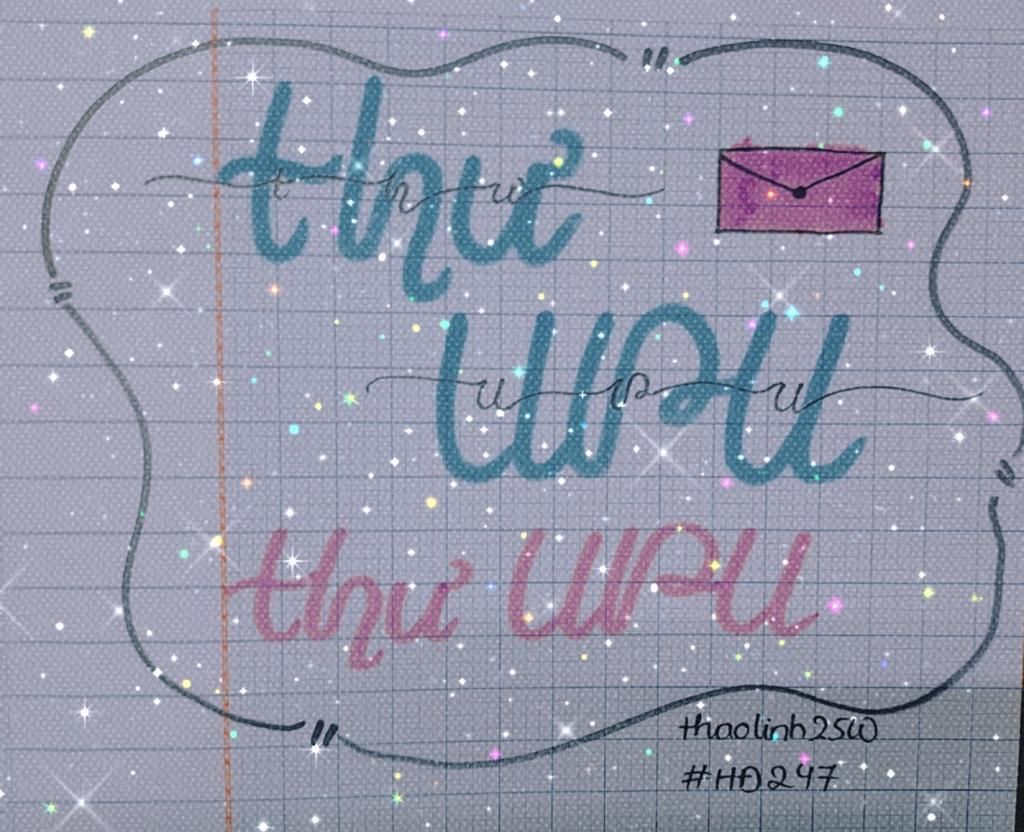 thư
thư
UPU
UPU
thư UPU
thaolinh25W
#HĐ247